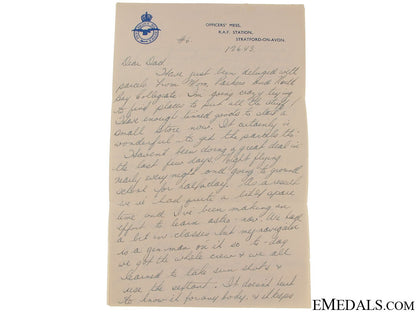 OFFICERS' MESS,
R.A.F. STATION,
STRATFORD-ON-AVON.
#6.
12643
Dear Dad
Have just been deluged with
parcels from Mom, Parkers and North
Bay Collegiate. I'm going crazy trying
to find places to put all the stuff!
Have enough tinned goods to start a
small store now. It certainly is
wonderful to get the parcels tho'
Haven't been doing a great deal in
the last few days. Night flying
nearly every night and going to ground
school for half a day. As a result
is I had quite a bit of spare
time and I've been making an
effort to learn astro now. We had
a bit in classes but my navigator
is a gen-man on it so to-day
we got the whole crew & we all
learned to take sun shots &
use the sextant. It doesn't hurt
to know it for any body. & it helps
EMEDALS.COM